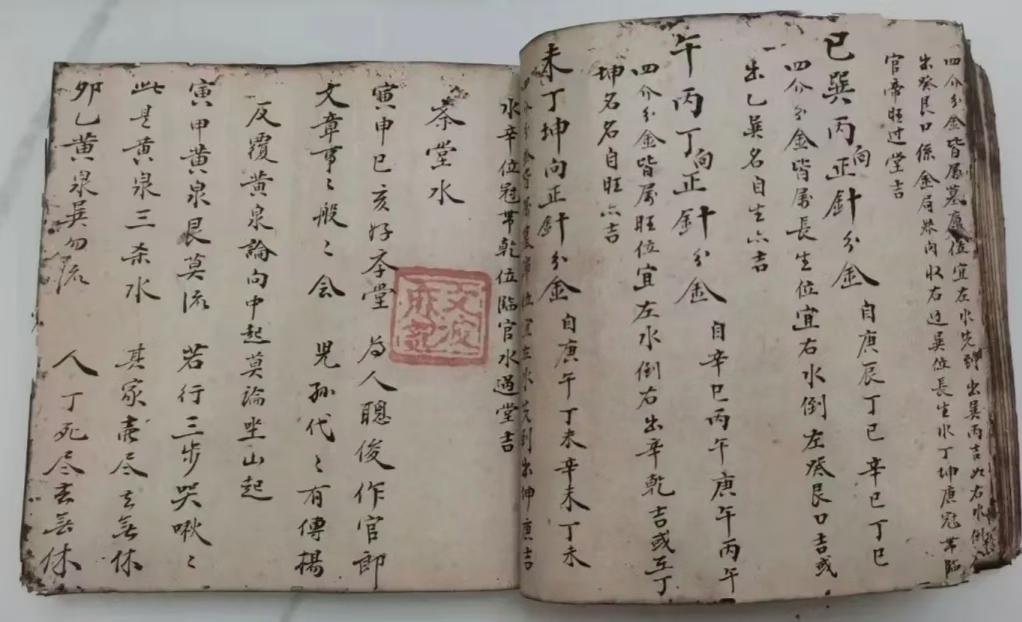 四介分金皆属墓庫位宜左水先到出巽丙吉如右水倒
出癸艮口係金局發内收右边巽位長生水丁坤庚冠帶臨
官帝旺过堂吉
巳巽丙向正針分金 自庚辰丁巳辛巳丁巳
四介分金皆属長生位宜右水倒左癸艮口吉或
出乙巽名自生六吉
午丙丁向正針分金 自辛巳丙午庚午丙午
四介分金皆属旺位宜左水倒右出辛乾吉或丁
坤名名自旺六吉
未丁坤向正針分金 自庚午丁未辛未丁未
水辛位冠帶乾位臨官水過堂吉
茶堂水
寅申巳亥好茶堂 为人聰俊作官郎
文章事〻般〻会 児孫代〻有傳揚
反覆黄泉論向中起莫論坐山起
寅甲黄泉艮莫流 若行三步哭啾〻
此是黄泉三杀水 其家夀尽云無休
卯乙黄泉巽勿流 人丁死尽去無休